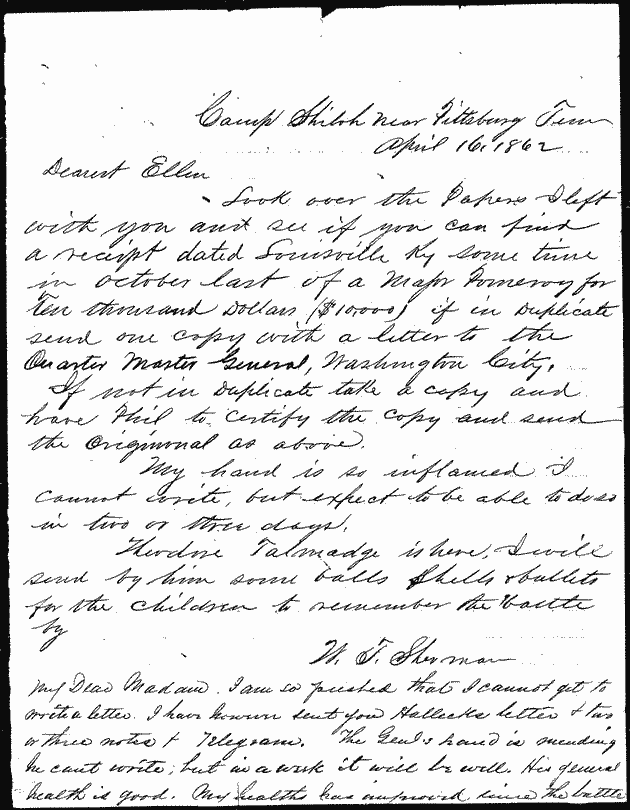 Camp Shiloh near Pittsburg Tenn
April 16, 1862
Dearest Ellen
Look over the Papers I left
with you and see if you can find
a receipt dated Louisville Ky some time
in october last of a Major Pomeroy for
Ten thousand Dollars ($10,000) if in Duplicate
send one copy with a letter to the
Quarter Master General, Washington City.
If not in Duplicate take a copy and
have Phil to certify the copy and send
the original as above.
My hand is so inflamed I
cannot write, but expect to be able to do so
in two or three days.
Theodore Talmadge is here. I will
send by him some balls Shells & bullets
for the children to remember the battle
by
W. T. Sherman
My Dear Madam. I am so pushed that I cannot get to
write a letter. I have however sent you Hallecks letter & two
or three notes & Telegram. The Genl's hand is mending
he cant write, but in a week it will be well. His general
health is good. My health has improved since the battle